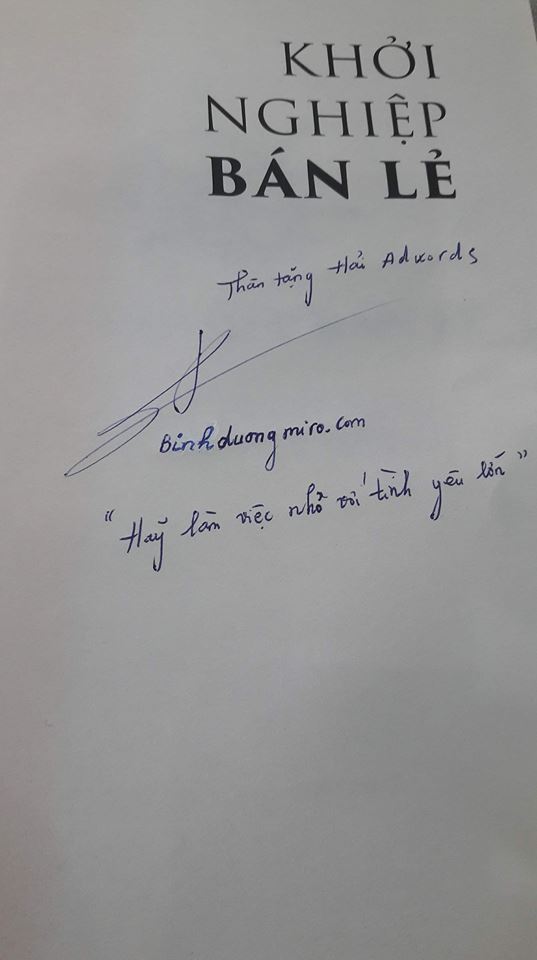 KHỞI
NGHIỆP
BÁN LẺ
Thân tặng Hải Adwords
Binhduongmiro.com
"Hãy làm việc nhỏ với tình yêu lớn"